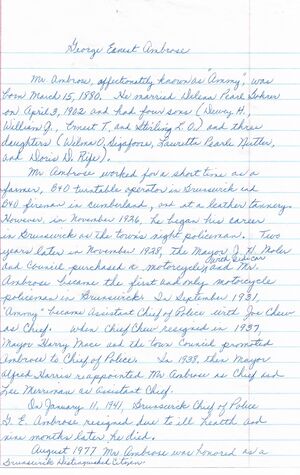 George Earnest Ambrose
Mr. Ambrose, affectionately known as "Ammy", was
born March 15, 1880. He married Delena Pearl
on April 3, 1902 and had four sons (Dewey H.,
William G., Ernest T., and Stirling L. A.) and three
daughters (Welna O. Sigafoose, Lauretta Pearle Hetter,
and Doris D. Rife).
Mr. Ambrose worked for a short time as a
farmer, B&O turntable operator in Brunswick and
B&O fireman in Cumberland, and at a leather tannery.
However, in November 1926, he began his career
in Brunswick as the town's night policeman. Two
years later in November 1928, the Mayor J. H. Noler
and Council purchased a motorcycle with sidecar and Mr.
Ambrose became the first and only motorcycle
policeman in Brunswick. In September 1931,
"Ammy" became Assistant Chief of Police with Joe Chew
as Chief. When Chief Chew resigned in 1937,
Mayor Harry Mace and the town Council promoted
Ambrose to Chief of Police. In 1938, then Mayor
Alfred Harris reappointed Mr. Ambrose as Chief and
Lee Merriman as Assistant Chief.
On January 11, 1941, Brunswick Chief of Police
G. E. Ambrose resigned due to ill health and
nine months later, he died.
August 1977 Mr. Ambrose was honored as a
Brunswick Distinguished Citizen.